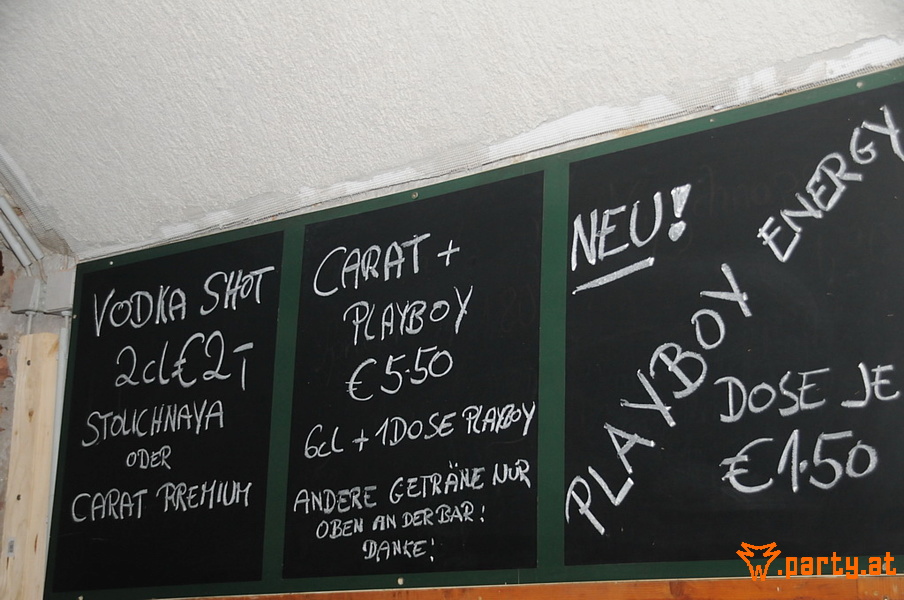 VODKA SHOT
2cl € 2,-
STOLICHNAYA
ODER
CARAT PREMIUM
CARAT +
PLAYBOY
€ 5.50
6cl + 1 DOSE PLAYBOY
ANDERE GETRÄNE NUR
OBEN AN DER BAR!
DANKE!
NEU!
PLAYBOY ENERGY
DOSE JE
€ 1.50
w.party.at